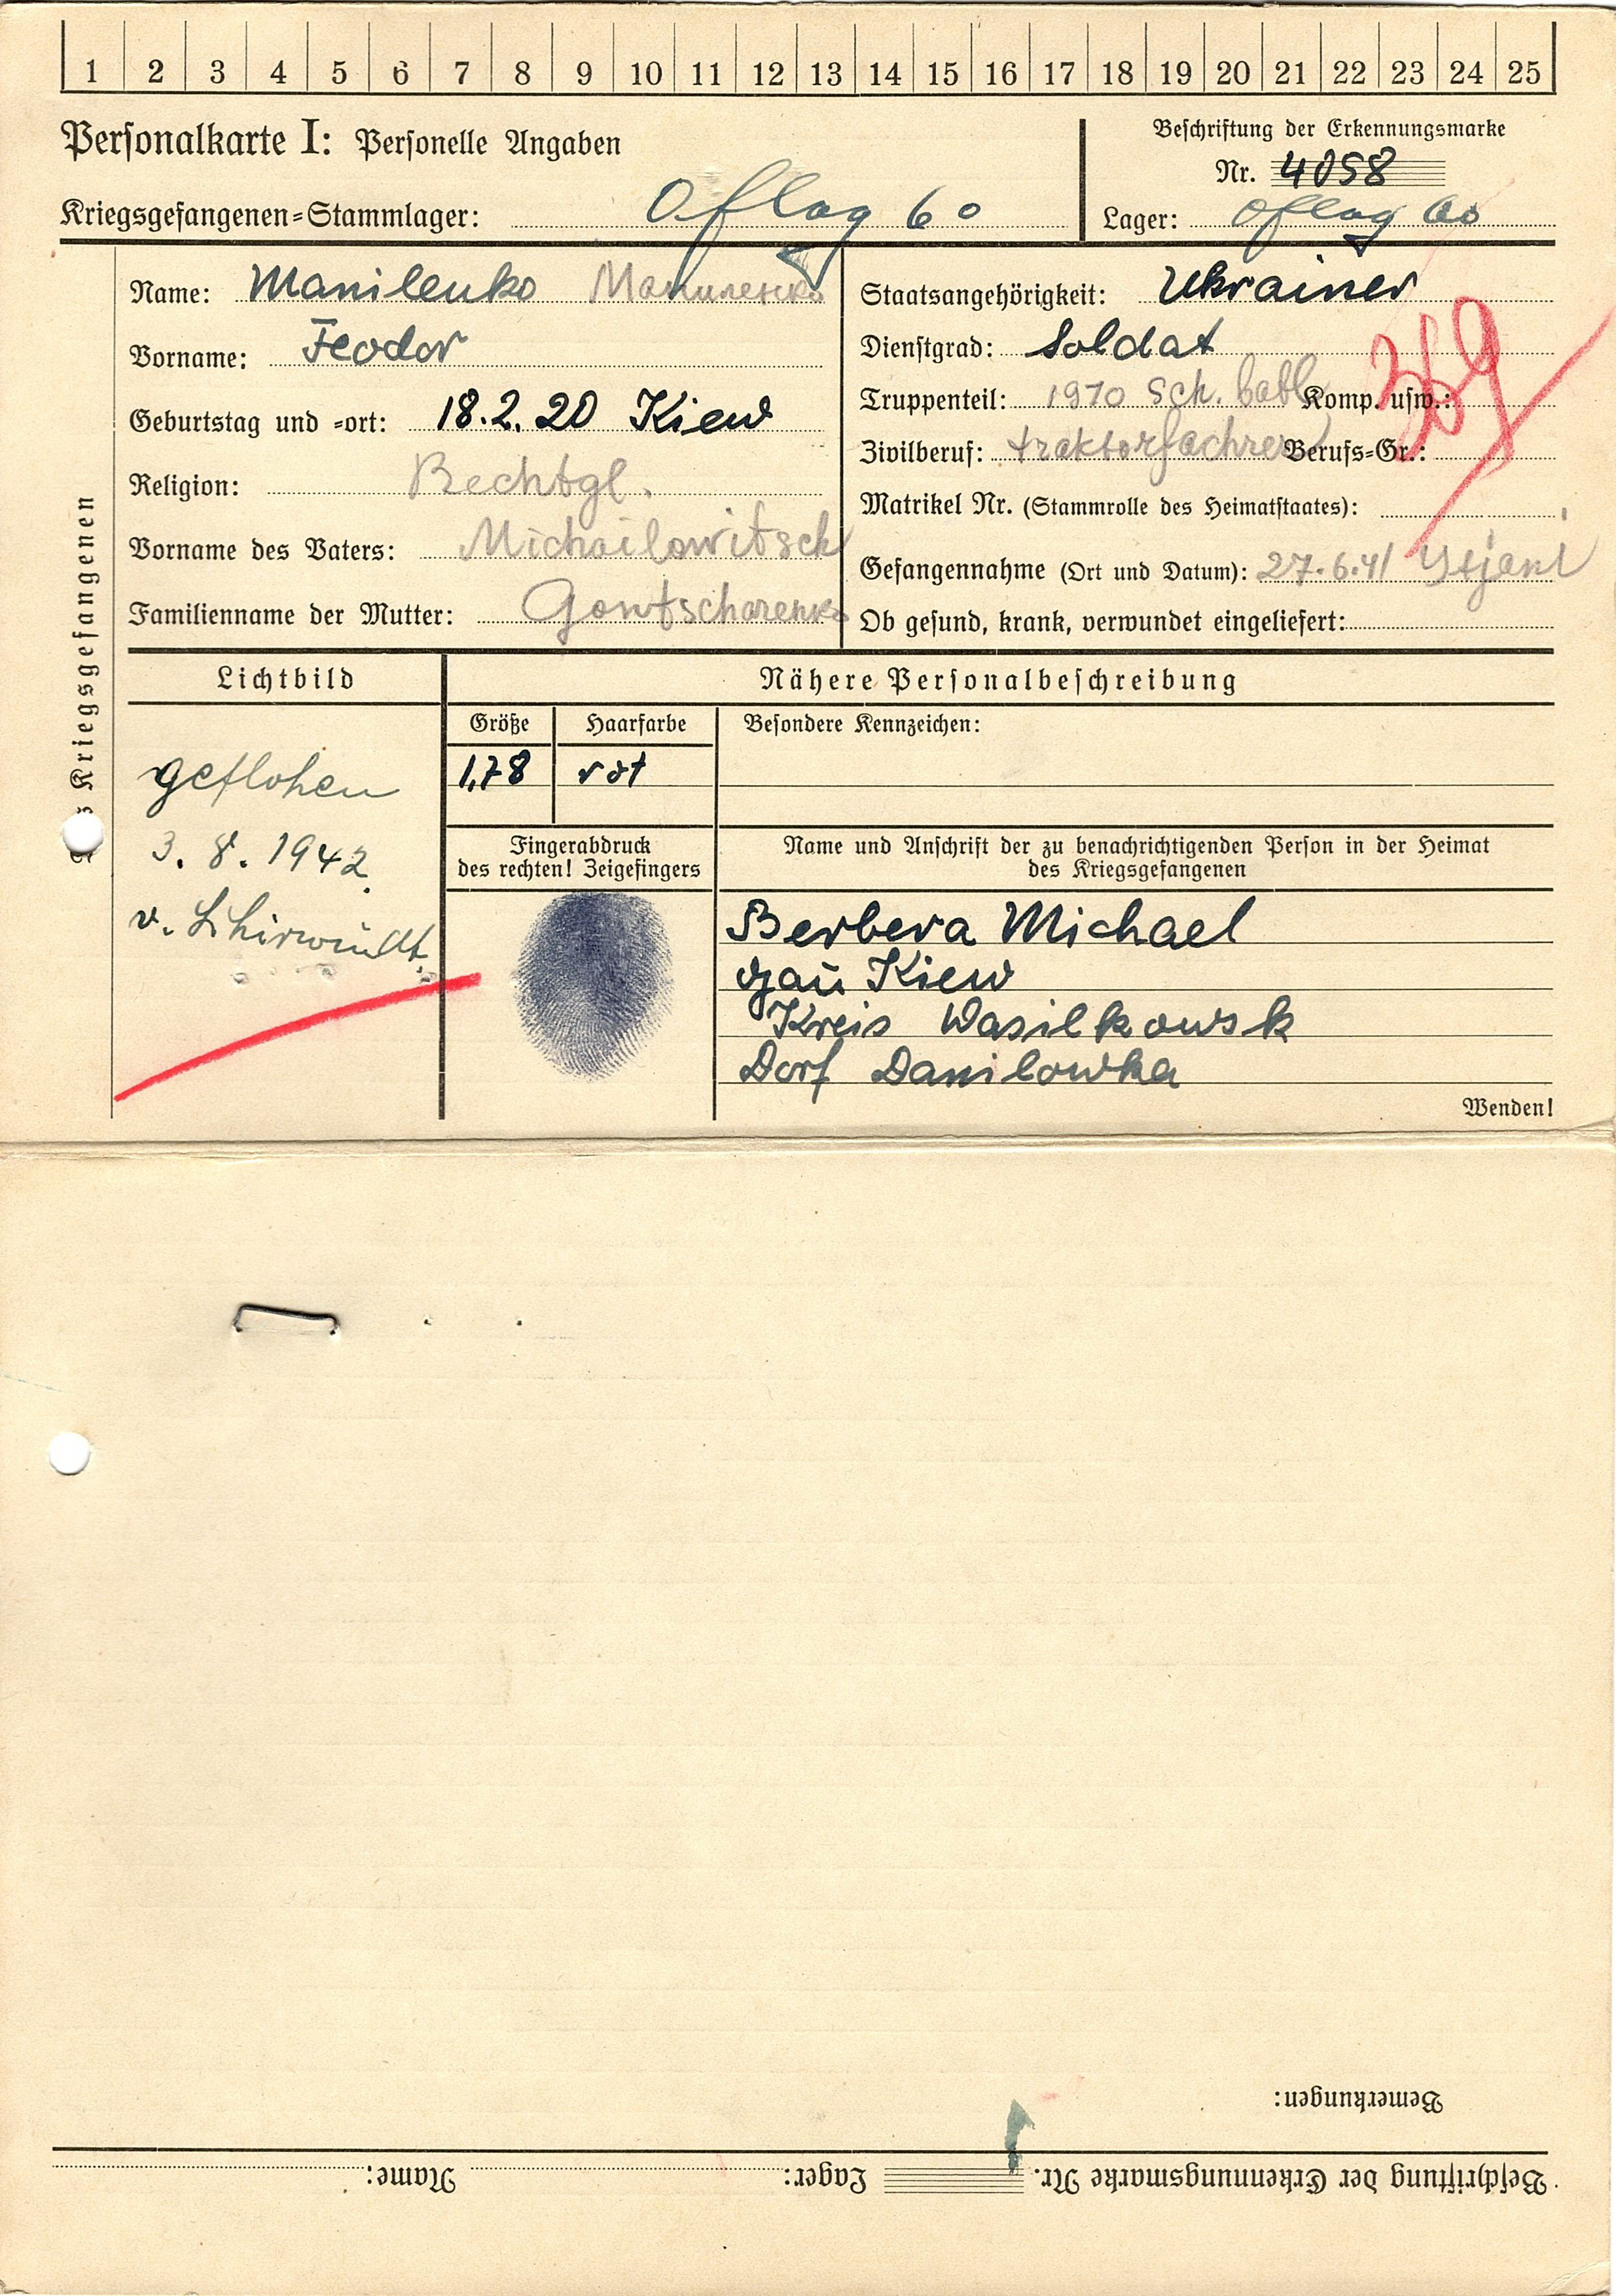 1 2 3 4 5 6 7 8 9 10 11 12 13 14 15 16 17 18 19 20 21 22 23 24 25
Personalkarte I: Personelle Angaben
Kriegsgefangenen=Stammlager: Oflag 60
Beschriftung der Erkennungsmarke
Nr. 4058
Lager: Oflag 60
des Kriegsgefangenen
Name: Manilenko Маниленко
Vorname: Feodor
Geburtstag und =ort: 18.2.20 Kiew
Religion: Rechtgl.
Vorname des Vaters: Michailowitsch
Familienname der Mutter: Gontscharenko
Staatsangehörigkeit: Ukrainer
Dienstgrad: Soldat
Truppenteil: 1970 Sch. batl Komp. usw.:
Zivilberuf: traktorfachrer Berufs=Gr.:
Matrikel Nr. (Stammrolle des Heimatstaates):
Gefangennahme (Ort und Datum): 27.6.41
Ob gesund, krank, verwundet eingeliefert:
369
Lichtbild
geflohen
3. 8. 1942
v.
Nähere Personalbeschreibung
Größe Haarfarbe Besondere Kennzeichen:
1,78 rot
Fingerabdruck
des rechten! Zeigefingers
Name und Anschrift der zu benachrichtigenden Person in der Heimat
des Kriegsgefangenen
Berbera Michael
Gau Kiew
Kreis Wasilkowsk
Dorf Danilowka
Wenden!
Bemerkungen:
Beschriftung der Erkennungsmarke Nr. Lager: Name: